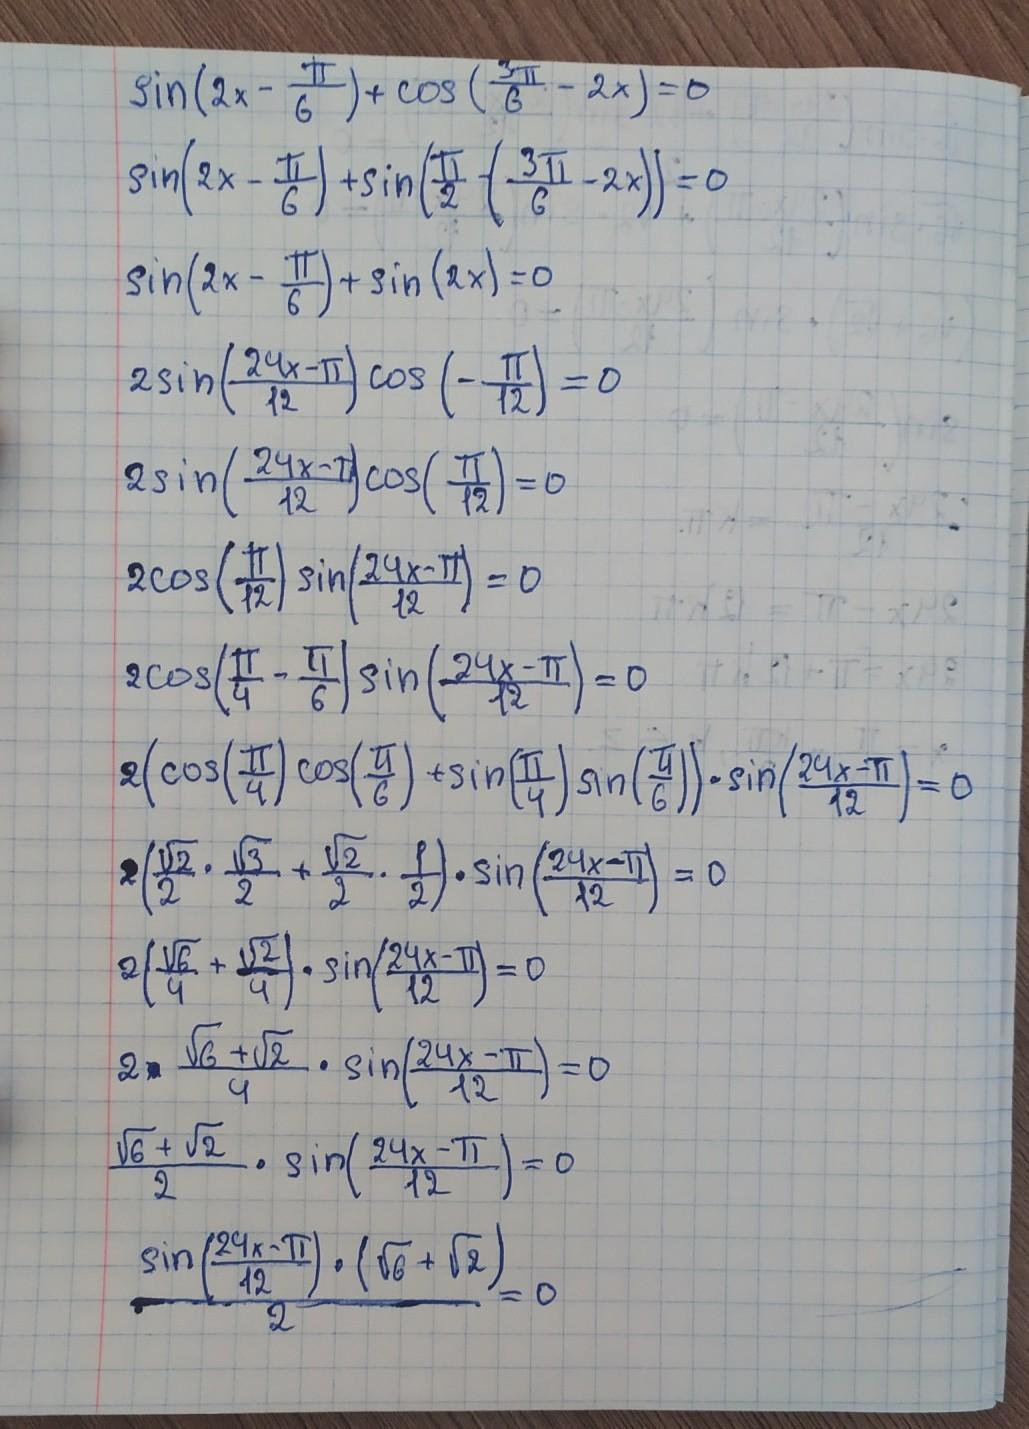 sin(2x - π/6) + cos(3π/6 - 2x) = 0
sin(2x - π/6) + sin(π/2 - (3π/6 - 2x)) = 0
sin(2x - π/6) + sin(2x) = 0
2sin((24x-π)/12) cos(-π/12) = 0
2sin((24x-π)/12) cos(π/12) = 0
2cos(π/12) sin((24x-π)/12) = 0
2cos(π/4 - π/6) sin((24x-π)/12) = 0
2(cos(π/4) cos(π/6) + sin(π/4) sin(π/6)) · sin((24x-π)/12) = 0
2(√2/2 · √3/2 + √2/2 · 1/2) · sin((24x-π)/12) = 0
2(√6/4 + √2/4) · sin((24x-π)/12) = 0
2 · (√6+√2)/4 · sin((24x-π)/12) = 0
(√6+√2)/2 · sin((24x-π)/12) = 0
(sin((24x-π)/12) · (√6+√2))/2 = 0